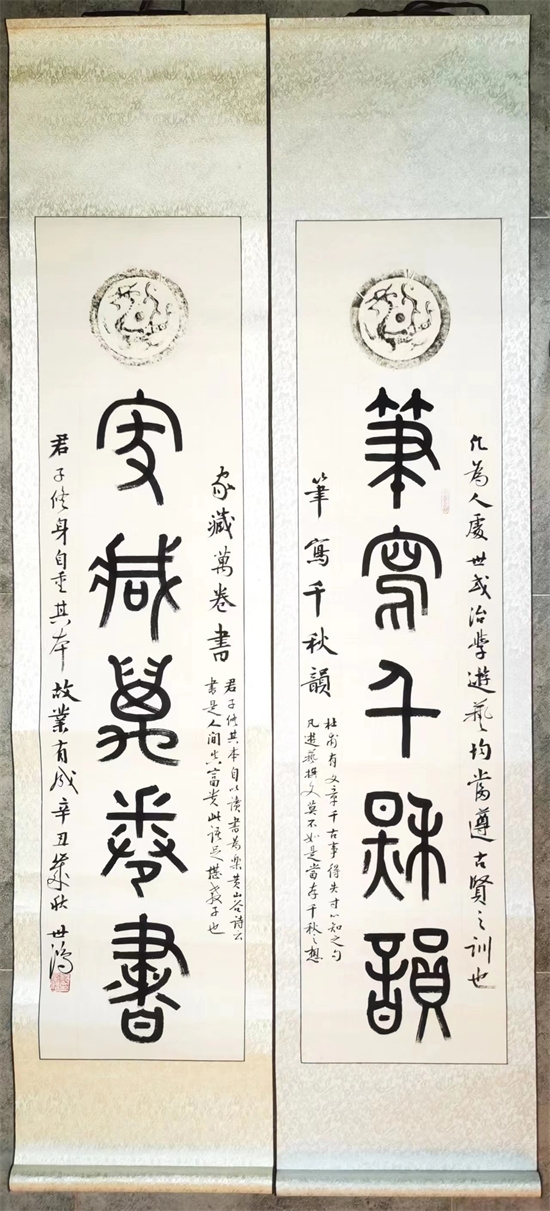 凡為人處世或治學遊藝均當遵古賢之訓也
筆寫千秋韻
筆寫千秋韻
杜甫有文章千古事得失寸心知之句
凡遊藝撰文莫不如是當存千秋之想
家藏萬卷書
君子修其本自以讀書為樂黃山谷詩云
書是人間真富貴此語足堪教子也
家藏萬卷書
君子修身自重其本故業有成辛丑歲秋世鴻